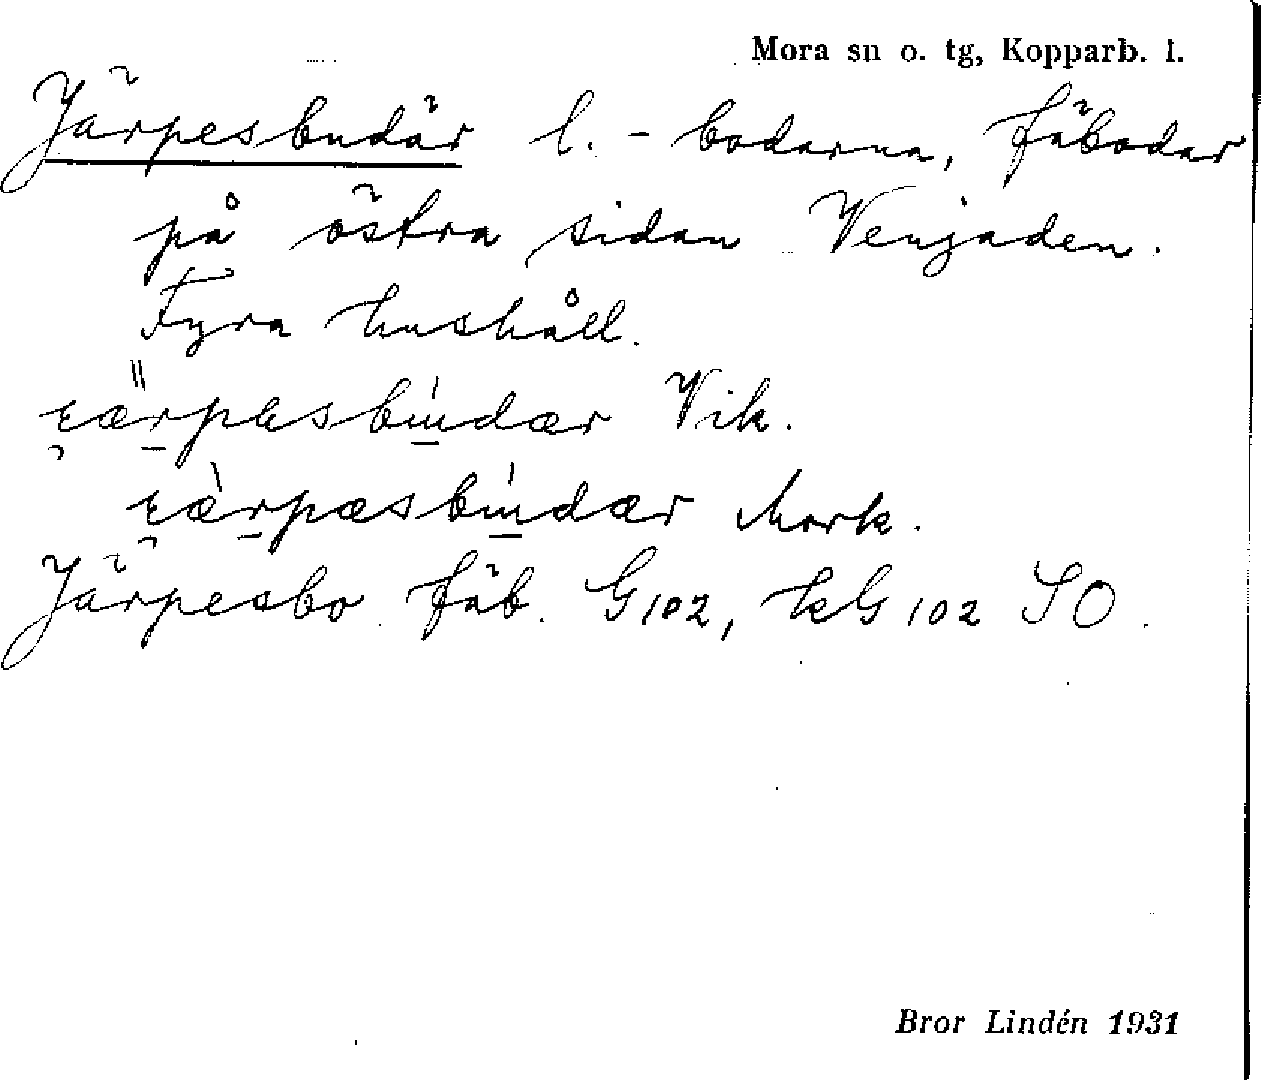 Mora sn o. tg, Kopparb. l.
Järpesbudär l. -bodarna, fäbodar
på östra sidan Venjaden.
Fyra hushåll.
Vik.
Mork.
Järpesbo fäb. G102, kG102 SO.
Bror Lindén 1931